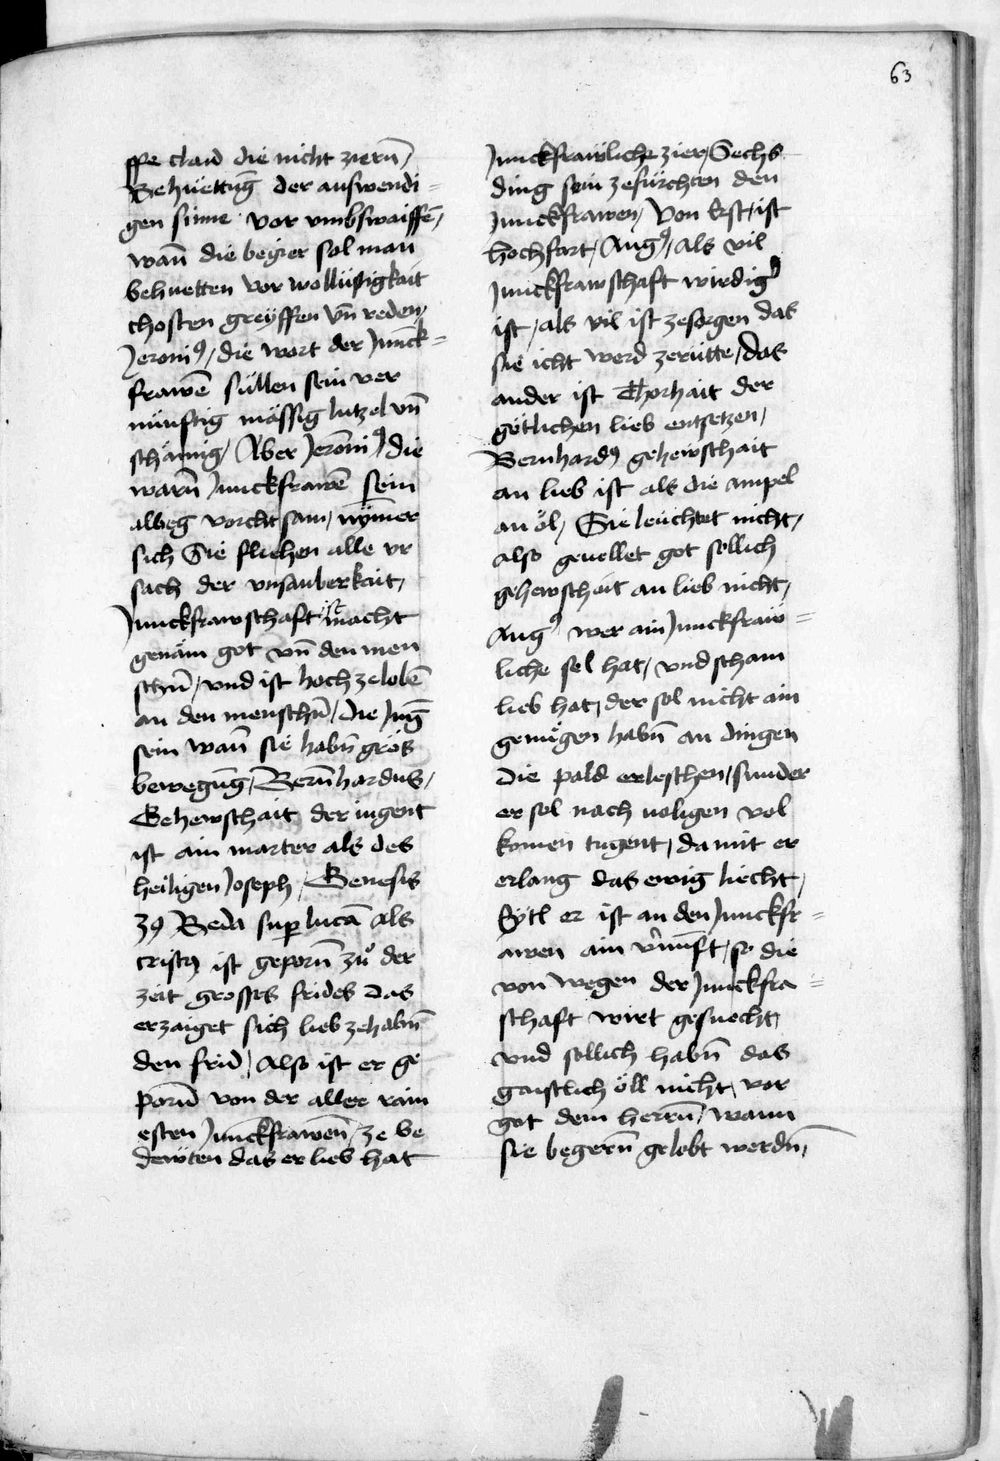 63
ffe claid die nicht ziern̄/
Behüettūg der auswendi=
gen sinne vor vmbswaiffē/
wan̄ die begier sol man
behuetten vor wollüstigkait
chosten greyffen vn̄ reden/
Jeronīꝰ/ die wort der Junck=
frawē süllen sein ver
nünftig mässig lutzel vn̄
schämig/ Aber Jeronīꝰ/ die
warn̄ Junckfrawē sein
albeg vorchtsam/ nȳmer
sich Sie fliehen alle vr
sach der vnsauberkait/
Junckfrawschaft ist macht
genäm got vn̄ den men
schn̄/ vnd ist hoch ze lobē
an den menschn̄/ die Jūg
sein wan̄ sie habn̄ gröss
bewegūg/ Bern̄hardus/
Gehewschait der iugent
ist ain marter als des
heiligen Joseph/ Genesis
39 Beda suꝑ lucā Als
cristꝰ ist geporn̄ zů der
zeit grosses frides Das
erzaiget sich lieb ze habn̄
den frid/ Also ist er ge
porn̄ von der aller rain
esten Junckfrawen̄/ ze be
dewten das er lieb hat
Junckfrawliche zier/ Sechs
ding sein ze fürchten den
Junckfrawen/ Von Erst/ ist
hochfart/ Augꝰ/ Als vil
Junckfrawschaft wirdigꝰ
ist/ als vil ist ze sorgen das
sie icht werd zerütte/ das
ander ist Thorhait der
götlichen lieb entsetzen/
Bernhardꝰ gehewschait
an lieb ist als die ampel
an öl/ Sie leuchtet nicht/
also geuellet got sollich
gehewschait an lieb nicht/
Augꝰ wer ain Junckfraw=
liche sel hat/ vnd scham
lieb hat/ der sol nicht ain
genügen habn̄ an dingen
die pald erleschen/ sunder
er sol nach uoligen vol
komen tugent/ da mit er
erlang das ewig liecht/
Eytl er ist an den Junckfr=
awen ain v̄nūft/ so die
von wegen der Junckfra=
schaft wirt gesuecht/
vnd sollich habn̄ das
gaistlich öll nicht/ vor
got dem herrn̄/ wann
sie begern̄ gelobt werdn̄/